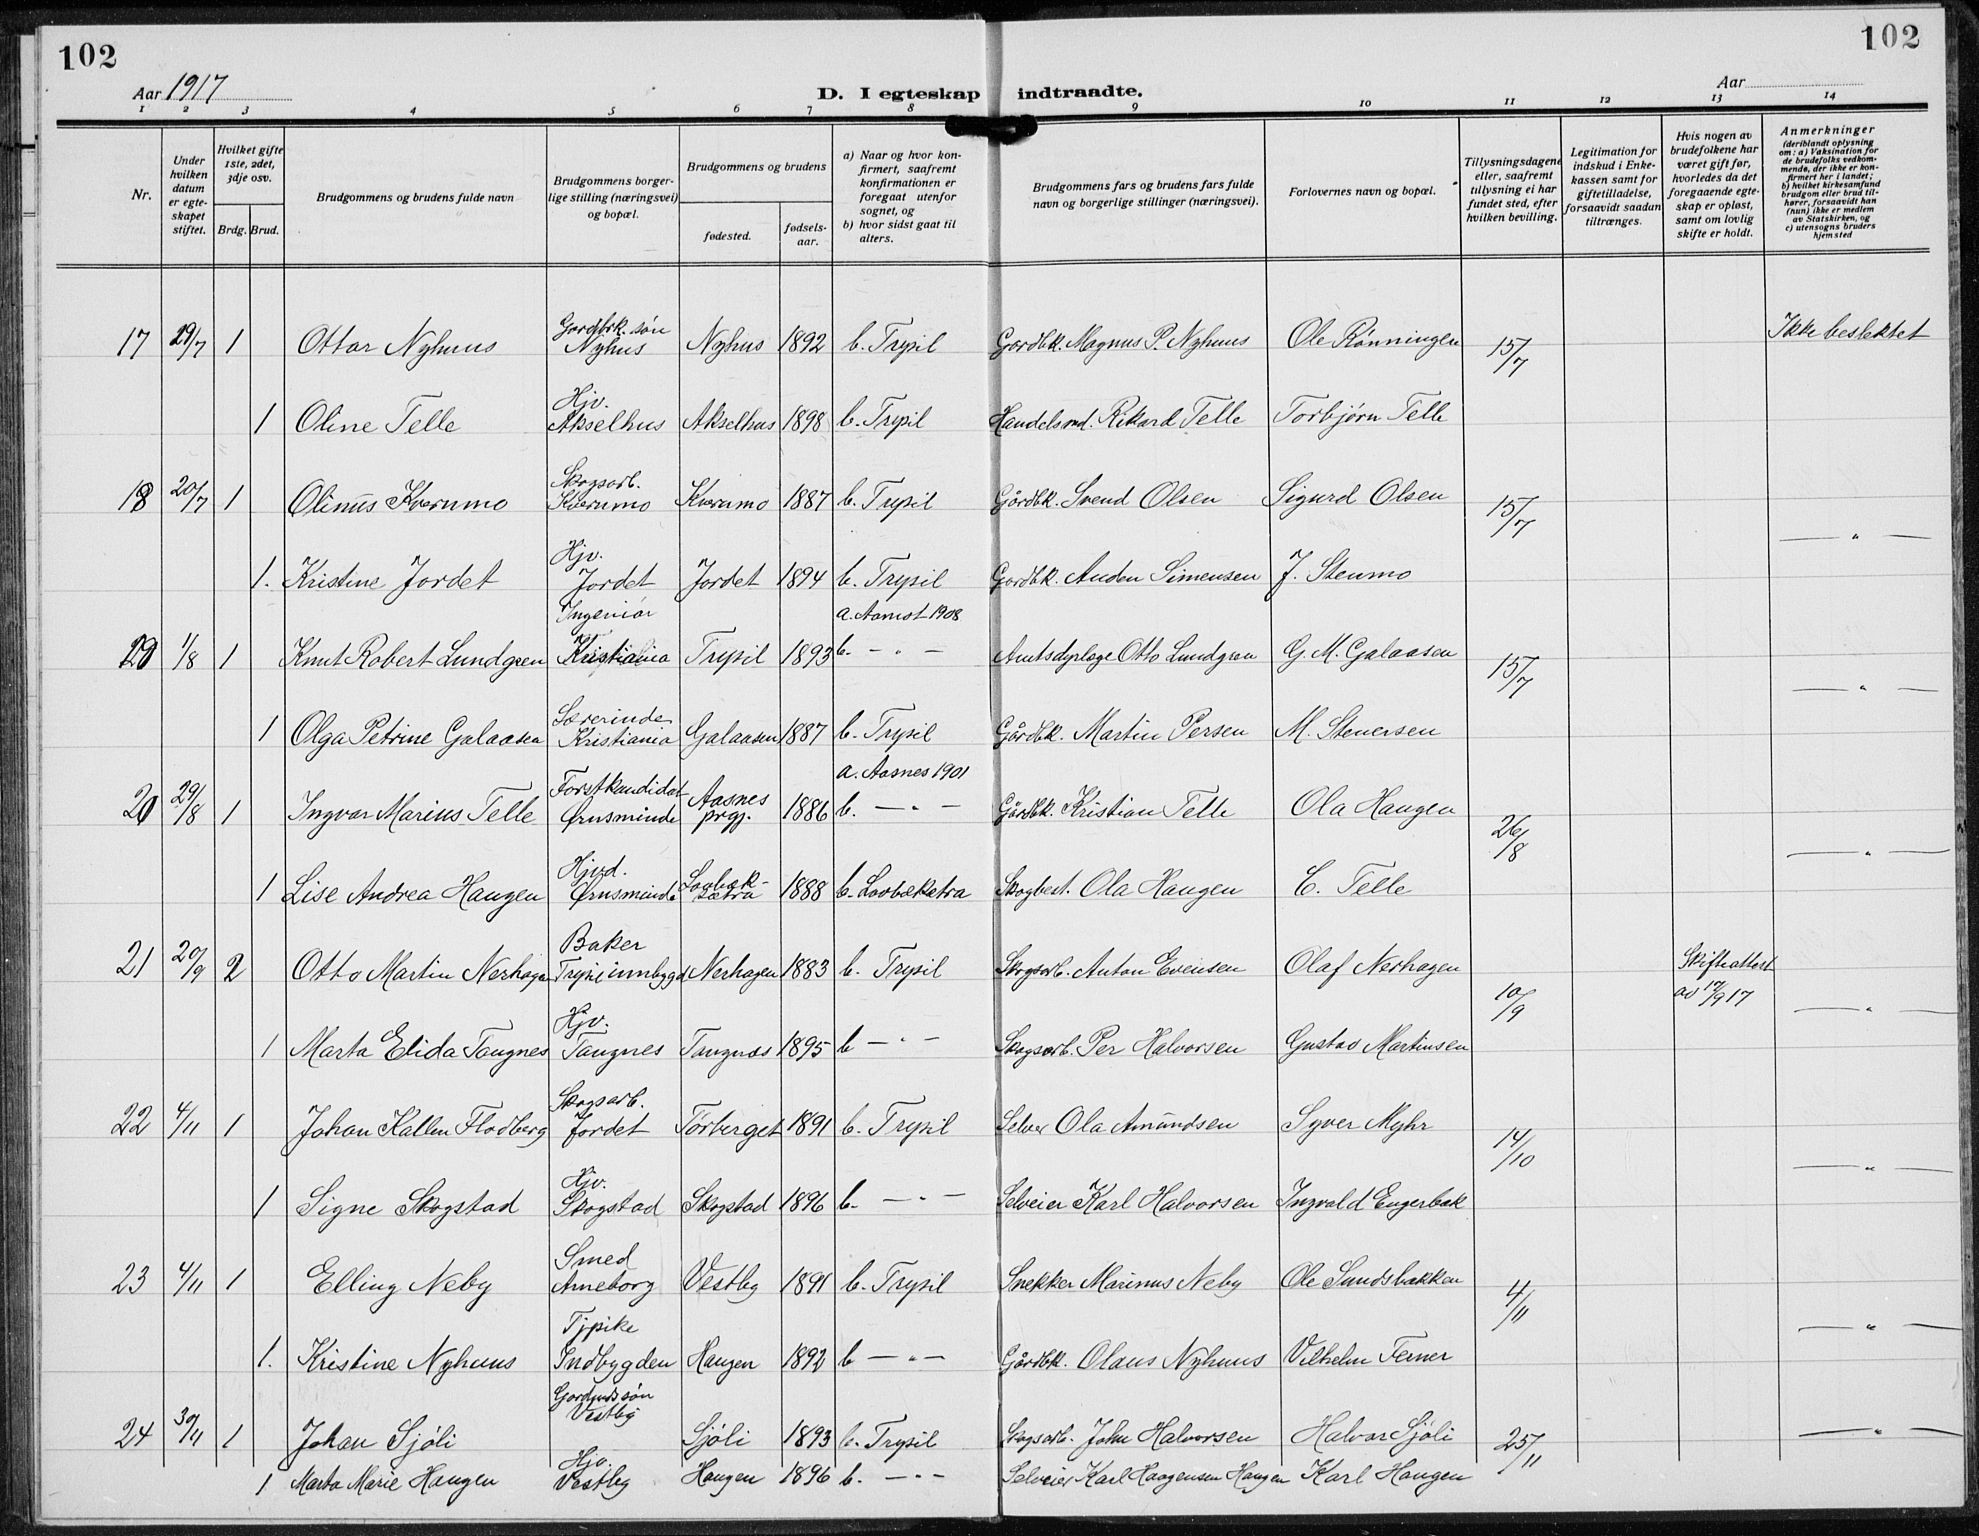 102
102
Aar 1917
D. I egteskap indtraadte.
Aar
1 2 3 4 5 6 7 8 9 10 11 12 13 14
Nr.
Under hvilken datum er egteskapet stiftet.
Hvilket gifte 1ste, 2det, 3dje osv.
Brdg. Brud.
Brudgommens og brudens fulde navn
Brudgommens borgerlige stilling (næringsvei) og bopæl.
Brudgommens og brudens
fødested.
fødselsaar.
a) Naar og hvor konfirmert, saafremt konfirmationen er foregaat utenfor sognet, og
b) hvor sidst gaat til alters.
Brudgommens fars og brudens fars fulde navn og borgerlige stillinger (næringsvei).
Forlovernes navn og bopæl.
Tillysningsdagene eller, saafremt tillysning ei har fundet sted, efter hvilken bevilling.
Legitimation for indskud i Enkekassen samt for giftetilladelse, forsaavidt saadan tiltrænges.
Hvis nogen av brudefolkene har været gift før, hvorledes da det foregaaende egteskap er opløst, samt om lovlig skifte er holdt.
Anmerkninger (deriblandt oplysning om: a) Vaksination for de brudefolks vedkommende, der ikke er konfirmert her i landet; b) hvilket kirkesamfund brudgom eller brud tilhører, forsaavidt han (hun) ikke er medlem av Statskirken, og c) utensogns bruders hjemsted
17 29/7 1 Ottar Nyhuus Gordbrk. søn Nyhus Nyhus 1892 b. Trysil Gordbk. Magnus P. Nyhuus Ole Rønningen 15/7 Ikke beslektet
1 Oline Telle Hjv. Akselhus Akselhus 1898 b. Trysil Handelsmd. Rikard Telle Torbjørn Telle
18 20/7 1 Olinus Kværnmo Skogsarb. Kværnmo Kværnmo 1887 b. Trysil Gårdbk. Svend Olsen Sigurd Olsen 15/7 — " —
1. Kristine Jordet Hjv. Jordet Jordet 1894 b. Trysil Gordbk. Auden Simensen J. Stenmo
1/8 1 Knut Robert Lundgren Ingeniør Kristiania Trysil 1893 a. Aamot 1908 b. — " — Otto Lundgren G. M. Galaasen 15/7 — " —
1 Olga Petrine Galaasen Lærerinde Kristiania Galaasen 1887 b. Trysil Gårdbk. Martin Persen M. Stenersen
20 29/8 1 Ingvar Marius Telle Forstkandidat Ørnsminde Aasnes prgj. 1886 a. Aasnes 1901 b. — " — Gårdbk. Kristian Telle Ola Haugen 26/8 — " —
1 Lise Andrea Haugen Hjvd. Ørnsminde Lovbæksætra 1888 b. Lovbæksetra Skogbest. Ola Haugen C. Telle
21 20/9 2 Otto Martin Nerhagen Baker Trysil innbygd Nerhagen 1883 b. Trysil Skogsarb. Anton Evensen Olaf Nerhagen 10/9 Skifteattest av 17/9 17 — " —
1 Marta Elida Tangnes Hjv. Tangnes Tangnæs 1895 b — " — Skogsarb. Per Halvorsen Gustav Martinsen
22 4/11 1 Johan Kallen Flodberg Skogsarb. Jordet Tørberget 1891 b. Trysil Selvei Ola Amundsen Syver Myhr 14/10 — " —
1 Signe Skogstad Hjv. Skogstad Skogstad 1896 b. — " — Selveier Karl Halvorsen Ingvald Engerbæk
23 4/11 1 Elling Neby Smed Arneborg Vestby 1891 b. Trysil Snekker Marinus Neby Ole Sundsbakken 4/11 — " —
1. Kristine Nyhuus Tjpike Indbygden Haugen 1892 b — " — Gårdbk. Olaus Nyhuus Vilhelm Ferner
24 30/11 1 Johan Sjøli Vestby Sjøli 1893 b. Trysil Skogsarb. John Halvorsen Halvor Sjøli 25/11 — " —
1 Marta Marie Haugen Hjv. Vestby Haugen 1896 b. — " — Selveier Karl Haagensen Haugen Karl Haugen